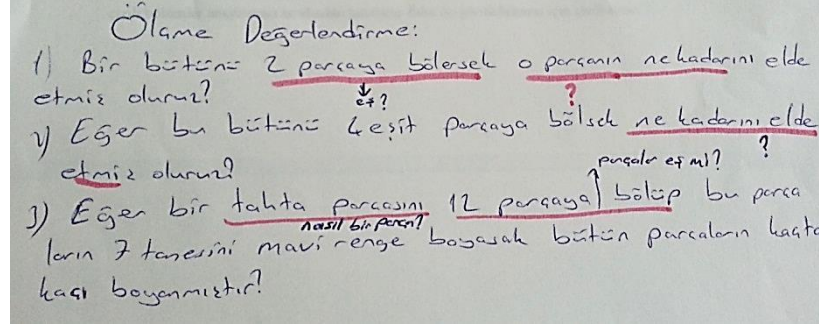 Ölçme Değerlendirme:
1) Bir bütünü 2 parçaya bölersek o parçanın ne kadarını elde
etmiş oluruz?
eş?
?
2) Eğer bu bütünü 4 eşit parçaya bölsek ne kadarını elde
etmiş oluruz?
?
parçalar eş mi?
3) Eğer bir tahta parçasını 12 parçaya bölüp bu parça
nasıl bir parça?
ların 7 tanesini mavi renge boyasak bütün parçaların kaçta
kaçı boyanmıştır?